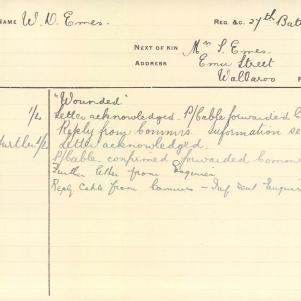 NAME W. D. Emes.
REG. &C. 27th Batt
NEXT OF KIN Mr S. Emes.
ADDRESS Emu Street
Wallaroo
"Wounded"
1/2 Letter acknowledged. P/Cable forwarded C
Reply from Commrs. Information se
Further 1/2 Letter acknowledged.
P/Cable confirmed forwarded Comm
Further letter from Enquirer
Reply Cable from Commrs - Inf sent Enquir